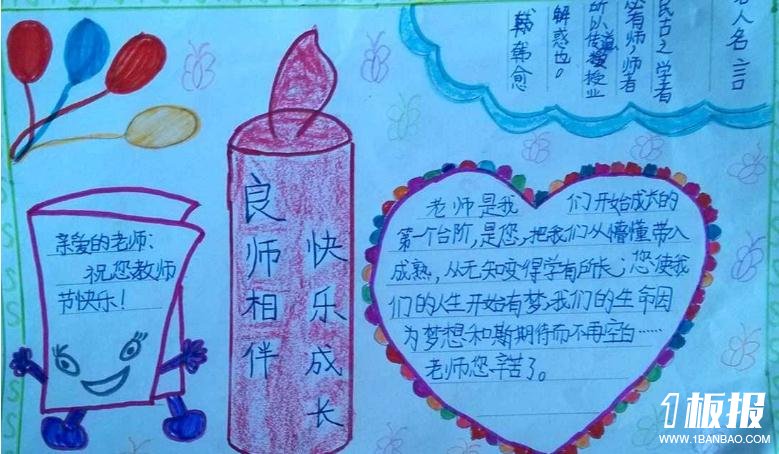 人名言
民古之学者
必有师,师者
所以传道授业
解惑也。
韩韩愈
良师相伴
快乐成长
亲爱的老师:
祝您教师
节快乐!
老师是我 们开始成长的
第一个台阶,是您,把我们从懵懂带入
成熟,从无知变得学有所长;您使我
们的人生开始有梦,我们的生命因
为梦想和斯期待而不再空白……
老师您辛苦了。
1板报
WWW.1BANBAO.COM